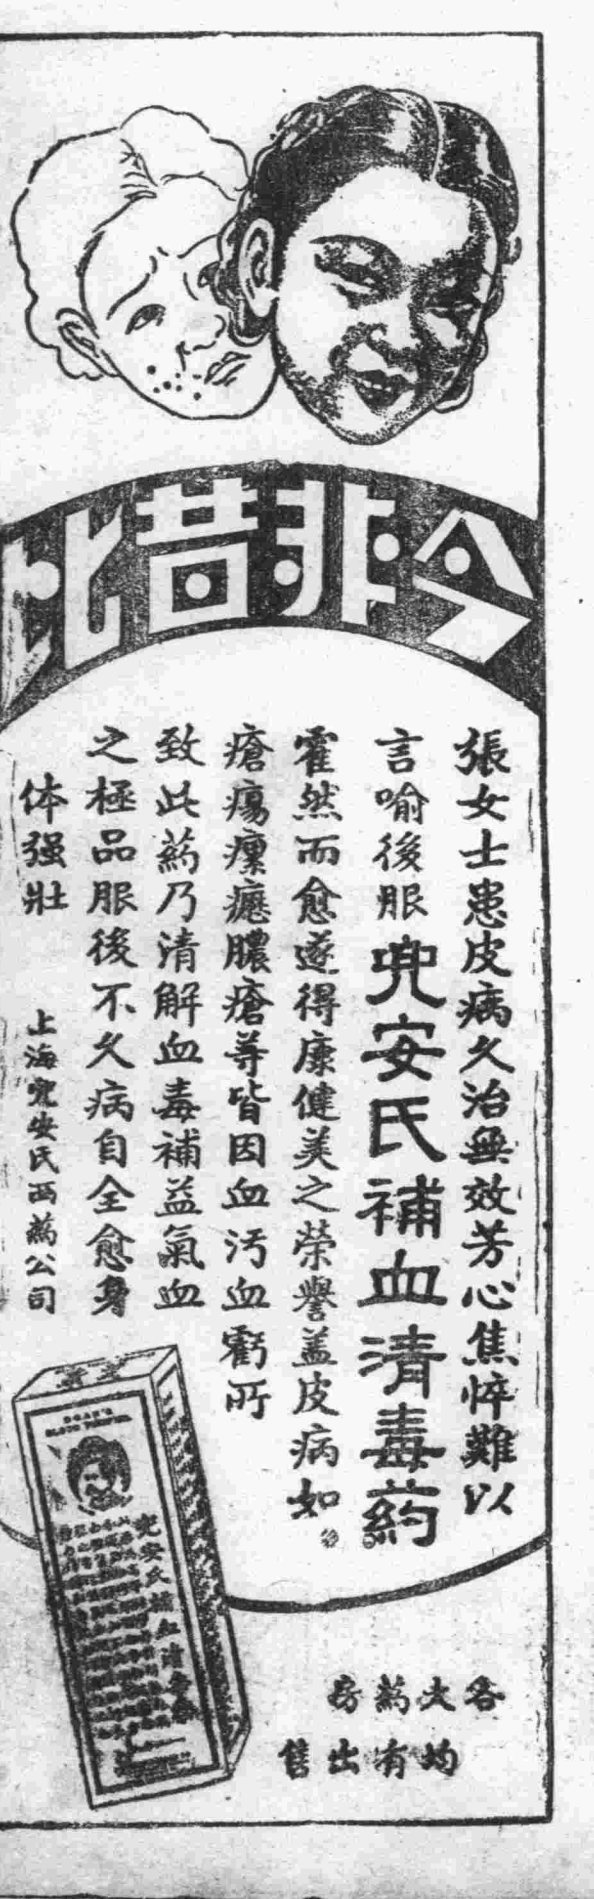 今非昔比
張女士患皮病久治無效芳心焦悴難以
言喻後服兜安氏補血清毒药
霍然而愈遂得康健美之榮譽盖皮病如
瘡瘍瘰癧膿瘡等皆因血汚血虧所
致此药乃清解血毒補益氣血
之極品服後不久病自全愈身
体强壯
上海兜安氏西药公司
DOAN'S
兜安氏補血清毒药
各大药房
均有出售